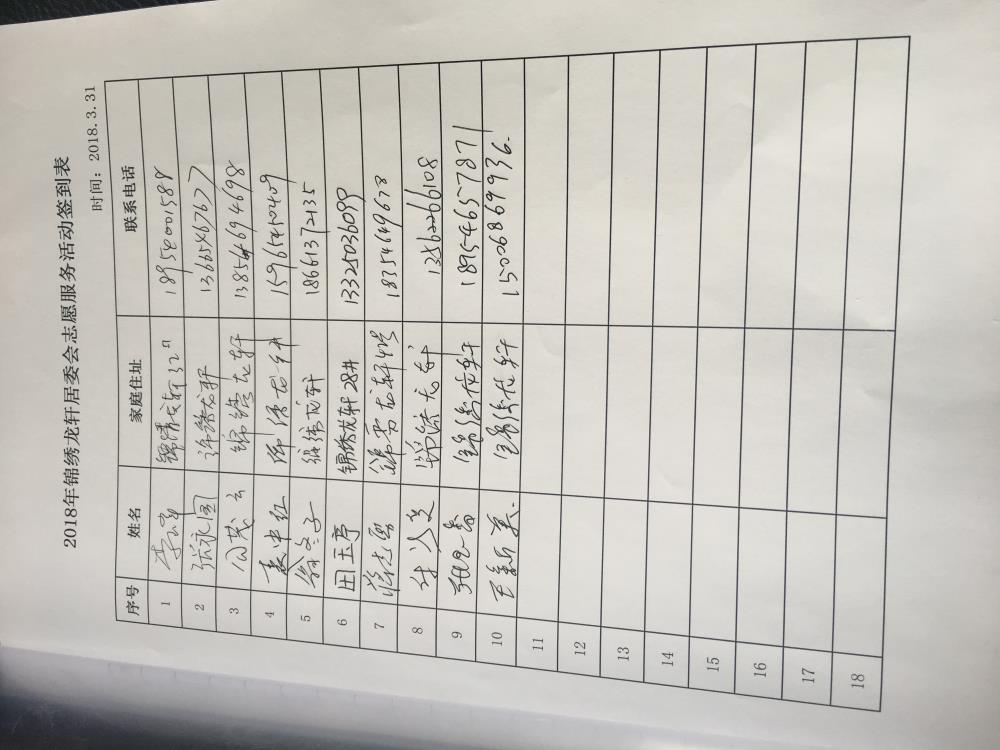 2018年锦绣龙轩居委会志愿服务活动签到表
时间：2018.3.31
序号 姓名 家庭住址 联系电话
1 18954001588
2 张永国 锦绣龙轩 13665467677
3 公茂云 锦绣龙轩 13854694698
4 袁中红 锦绣龙轩 15965450409
5 锦绣龙轩 18661372135
6 田玉亭 锦绣龙轩28# 13325036099
7 锦秀龙轩 18354649678
8 许义芝 锦绣龙轩 13562266108
9 锦绣龙轩 18954657871
10 王新美 锦绣龙轩 15006869936.
11
12
13
14
15
16
17
18